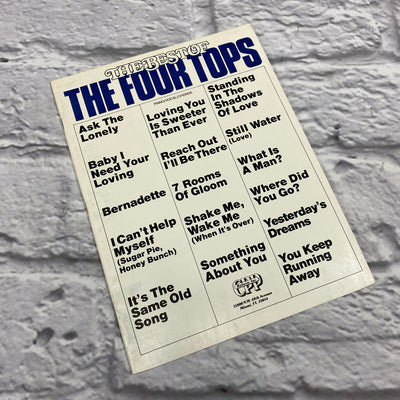 THE BEST OF
THE FOUR TOPS
PIANO/VOCAL/CHORDS
Ask The
Lonely
Baby I
Need Your
Loving
Bernadette
I Can't Help
Myself
(Sugar Pie,
Honey Bunch)
It's The
Same Old
Song
Loving You
Is Sweeter
Than Ever
Reach Out
I'll Be There
7 Rooms
Of Gloom
Shake Me,
Wake Me
(When It's Over)
Something
About You
Standing
In The
Shadows
Of Love
Still Water
(Love)
What Is
A Man?
Where Did
You Go?
Yesterday's
Dreams
You Keep
Running
Away
CPP
Miami, FL 33014